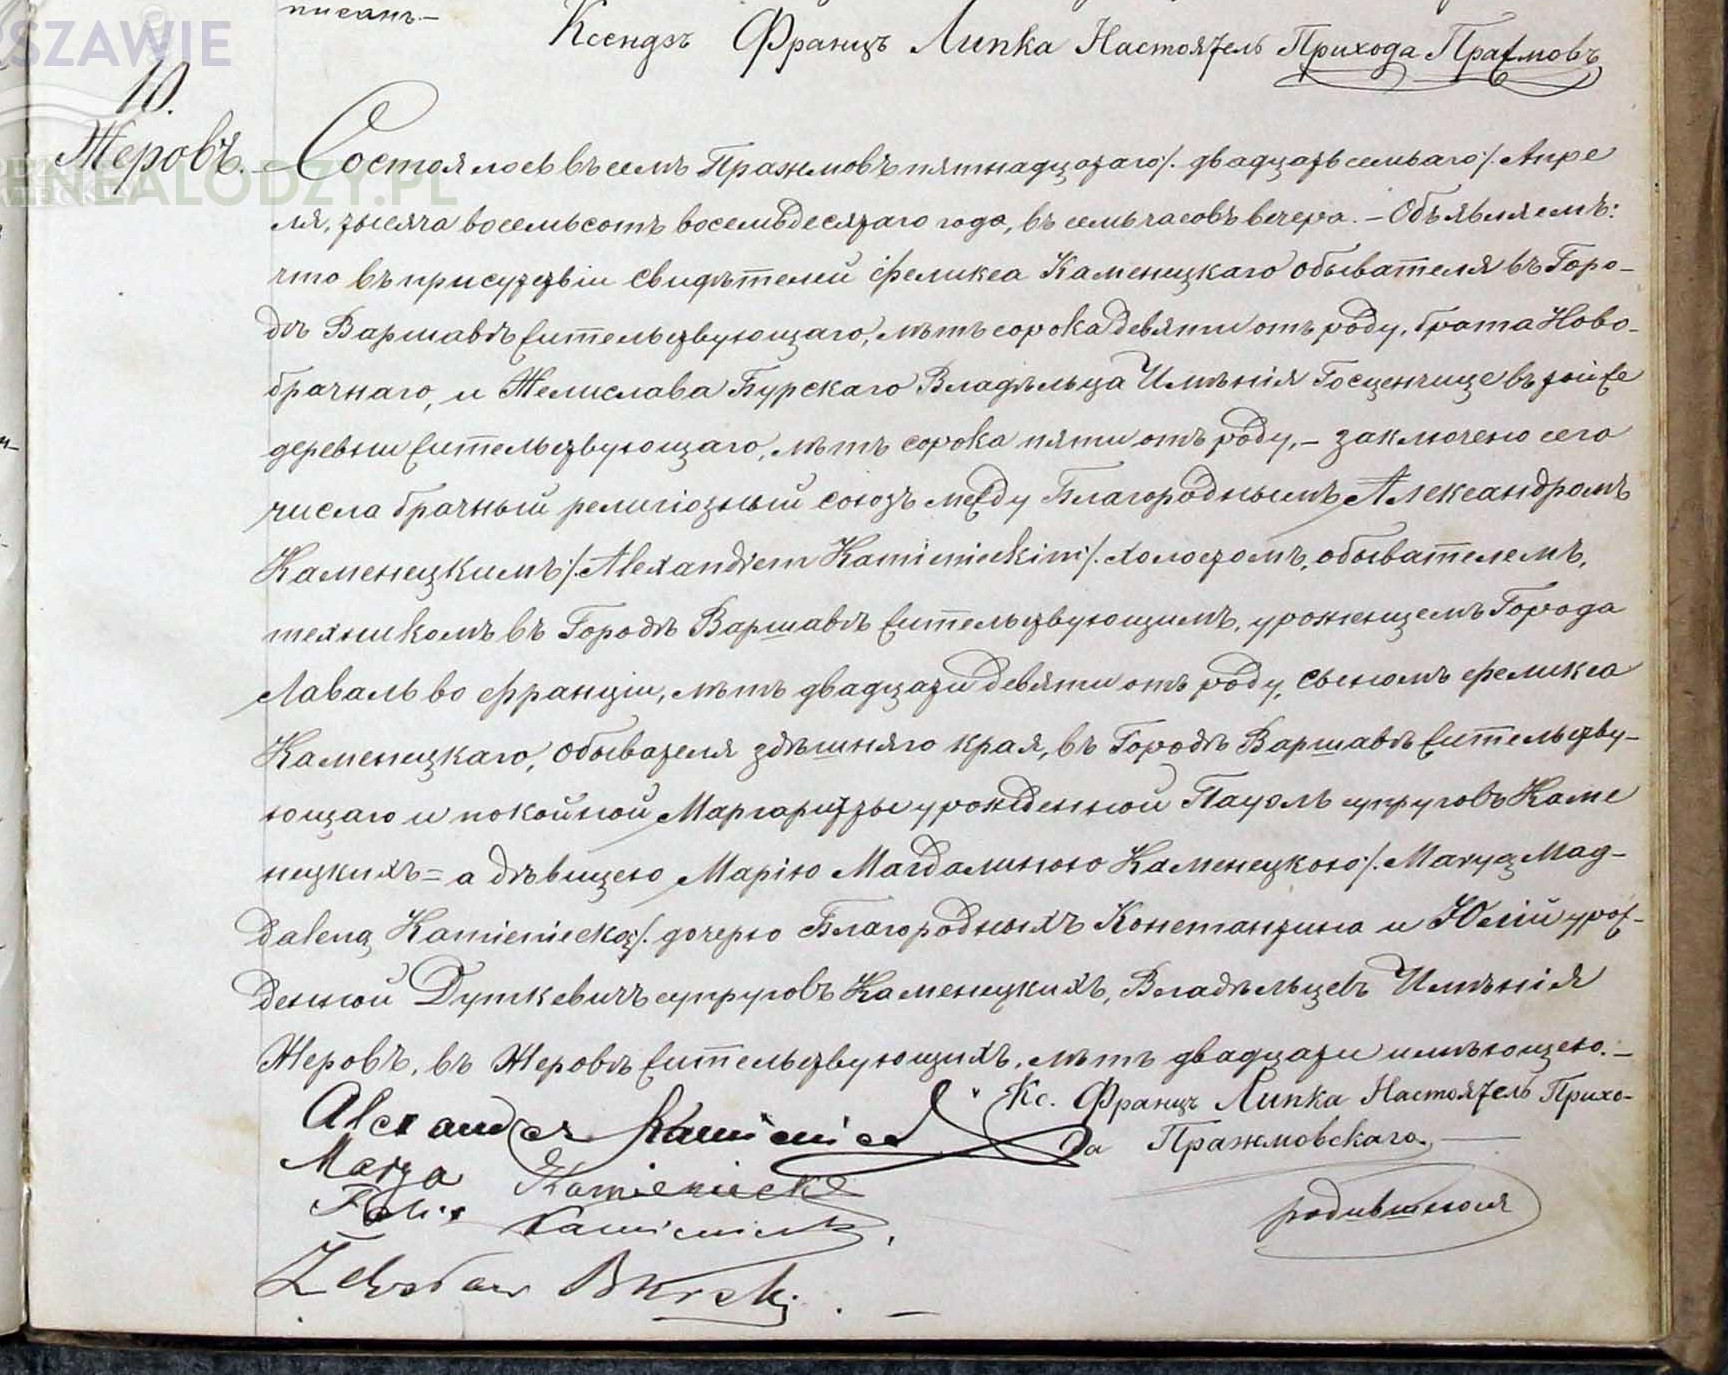 писанъ.—
Ксендзъ Францъ Липка Настоятель Прихода Пражмовъ
SZAWIE
10.
Жеровъ.
GENEALODZY.PL
Состоялось въ семъ Пражмовѣ пятнадцатаго /. двадцать семьаго /. Апре
ля, тысяча восемьсотъ восемьдесятаго года, въ семь часовъ вечера. — Объявляемъ:
что въ присутствіи свидѣтелей Феликса Каменецкаго обывателя въ Горо-
дѣ Варшавѣ жительствующаго, лѣтъ сорока девяти отъ роду, брата Ново-
брачнаго, и Желислава Бурскаго Владѣльца Имѣнія Госценчице въ тойже
деревни жительствующаго, лѣтъ сорока пяти отъ роду, — заключено сего
числа брачный религіозный союзъ между Благороднымъ Александромъ
Каменецкимъ /. Alexandrem Kamienieckim /. холостомъ, обывателемъ,
техникомъ въ Городѣ Варшавѣ жительствующимъ, уроженцемъ Города
Лаваль во Франціи, лѣтъ двадцати девяти отъ роду, сыномъ Феликса
Каменецкаго, обывателя здѣшняго края, въ Городѣ Варшавѣ жительству-
ющаго и покойной Маргаритты урожденной Пауоль супруговъ Каме
нецкихъ = а дѣвицею Марію Магдалиною Каменецкою /. Maryą Mag-
daleną Kamieniecką /. дочерью Благородныхъ Константина и Юлій урож-
денной Дуткевичъ супруговъ Каменецкихъ, Владѣльцевъ Имѣнія
Жеровъ, въ Жеровѣ жительствующихъ, лѣтъ двадцати имѣющею. —
Alexander Kamieniecki
Кс. Францъ Липка Настоятель Прихо-
да Пражмовскаго.
Marya Kamieniecka
родившаяся
Felix Kamieniecki
Żelisław Burski